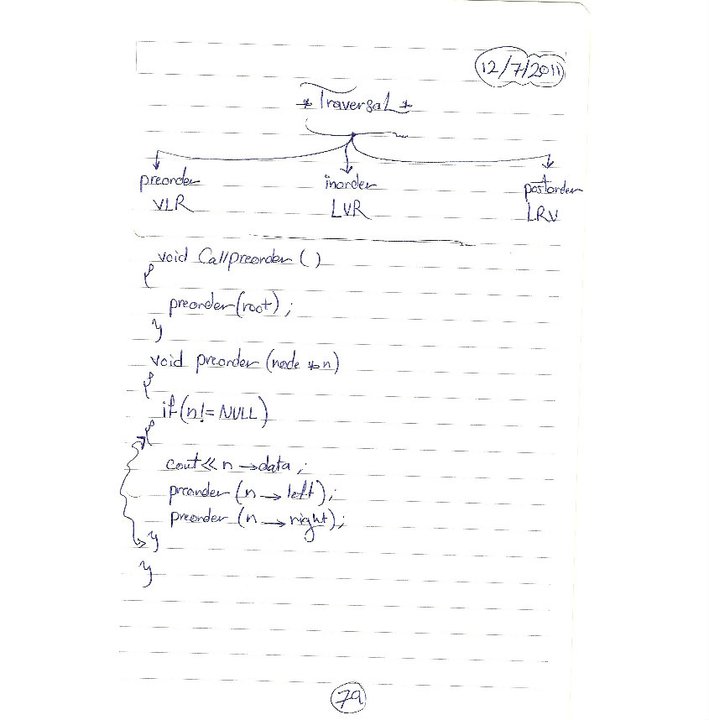 12/7/2011
* Traversal *
preorder inorder postorder
VLR LVR LRV
void Callpreorder ( )
{
preorder(root) ;
}
void preorder (node *n)
{
if(n!= NULL)
{
cout<< n →data ;
preorder (n → left) ;
preorder (n → right) ;
}
}
79